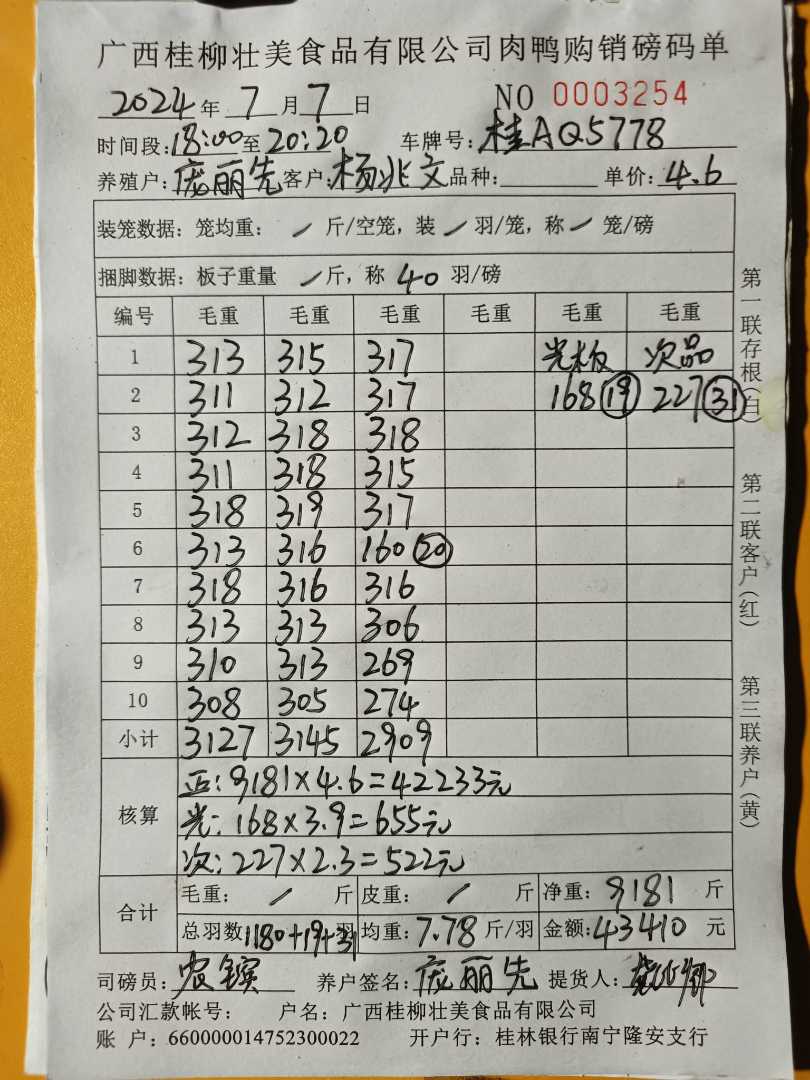 广西桂柳壮美食品有限公司肉鸭购销磅码单
2024年 7月 7日 NO 0003254
时间段:18:00至20:20 车牌号:桂AQ5778
养殖户:庞丽先 客户:杨兆文 品种: 单价:4.6
装笼数据:笼均重: / 斤/空笼,装 / 羽/笼,称 / 笼/磅
捆脚数据:板子重量 / 斤,称 40 羽/磅
编号 毛重 毛重 毛重 毛重 毛重 毛重
1 313 315 317 光板 次品
2 311 312 317 168 (19) 227 (31)
3 312 318 318
4 311 318 315
5 318 319 317
6 313 316 160 (20)
7 318 316 316
8 313 313 306
9 310 313 269
10 308 305 274
小计 3127 3145 2909
核算
正:9181×4.6=42233元
光:168×3.9=655元
次:227×2.3=522元
合计
毛重: / 斤 皮重: / 斤 净重: 9181 斤
总羽数:1180+19+31羽 均重:7.78斤/羽 金额:43410元
司磅员: 养户签名:庞丽先 提货人:
公司汇款帐号: 户名:广西桂柳壮美食品有限公司
账 户:660000014752300022 开户行:桂林银行南宁隆安支行
第一联存根(白)
第二联客户(红)
第三联养户(黄)